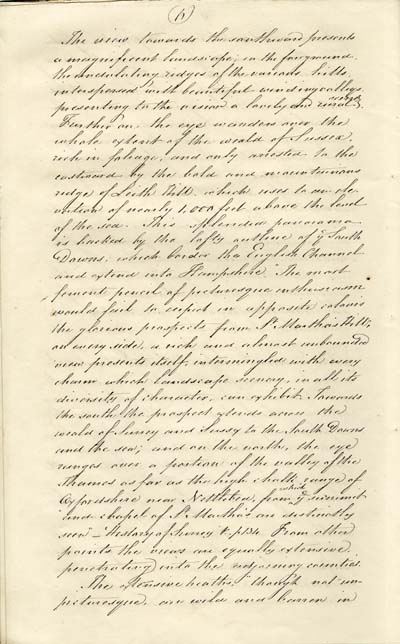 (6)
The view towards the southward presents
a magnificent landscape; in the foreground
the undulating ridges of the various hills,
interspersed with beautiful winding valleys,
presenting to the vision a lovely and rural
Further on, the eye wanders over the
whole extent of the weald of Sussex,
rich in foliage, and only arrested to the
eastward by the bold and mountainous
ridge of Leith Hill, which rises to an ele-
vation of nearly 1,000 feet above the level
of the sea. This splendid panorama
is backed by the lofty outline of ye South
Downs, which border the English Channel
and extend into Hampshire. "The most
fervent pencil of picturesque enthusiasm
would fail to depict in apposite colours
the glorious prospects from St Martha's Hill;
on every side, a rich and almost unbounded
view presents itself, intermingled with every
charm which landscape scenery, in all its
diversity of character, can exhibit. Towards
the south, the prospect extends across the
weald of Surrey and Sussex to the South Downs
and the sea; and on the north, the eye
ranges over a portion of the valley of the
Thames as far as the high chalk range of
Oxfordshire near Nettlebed, from which ye summit
and chapel of St Martha's are distinctly
seen" – History of Surrey &c p134. From other
points the views are equally extensive,
penetrating into the adjoining counties.
The extensive heaths, though not un-
picturesque, are wild and barren in